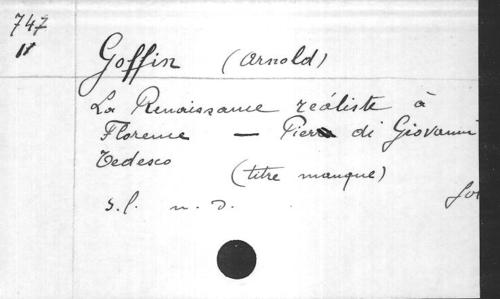 747
11
Goffin (Arnold)
La Renaissance réaliste à
Florence — Piero di Giovanni
Tedesco
(titre manque)
s.l. n. d.